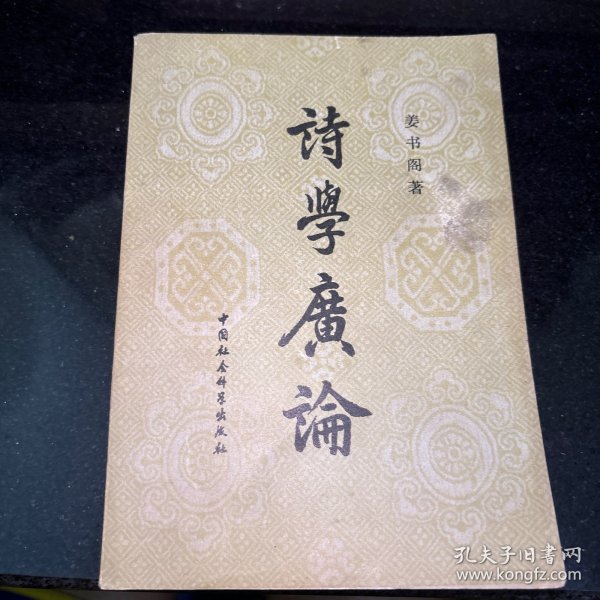 姜书阁著
詩學廣論
中国社会科学出版社
孔夫子旧书网
www.kongfz.com